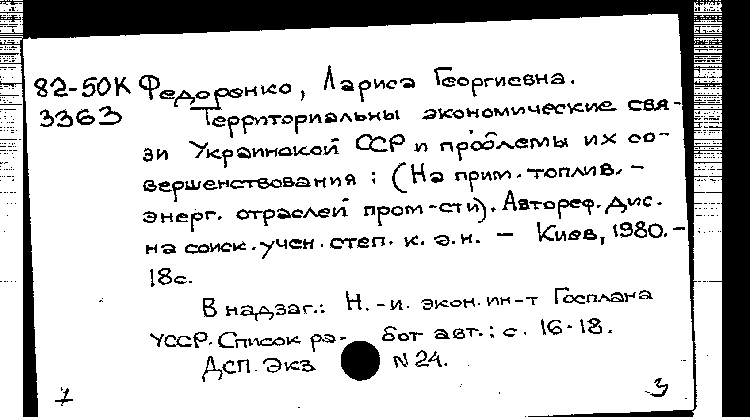 82-50К Федоренко, Лариса Георгиевна.
3363 Территориальны экономические свя-
зи Украинской ССР и проблемы их со-
вершенствования : (На прим. топлив. -
энерг. отраслей пром-сти). Автореф. дис.
на соиск. учен. степ. к. э. н. - Киев, 1980. -
18с.
В надзаг.: Н.-и. экон. ин-т Госплана
УССР. Список ра- бот авт.: с. 16-18.
ДСП. Экз N 24.
1 3